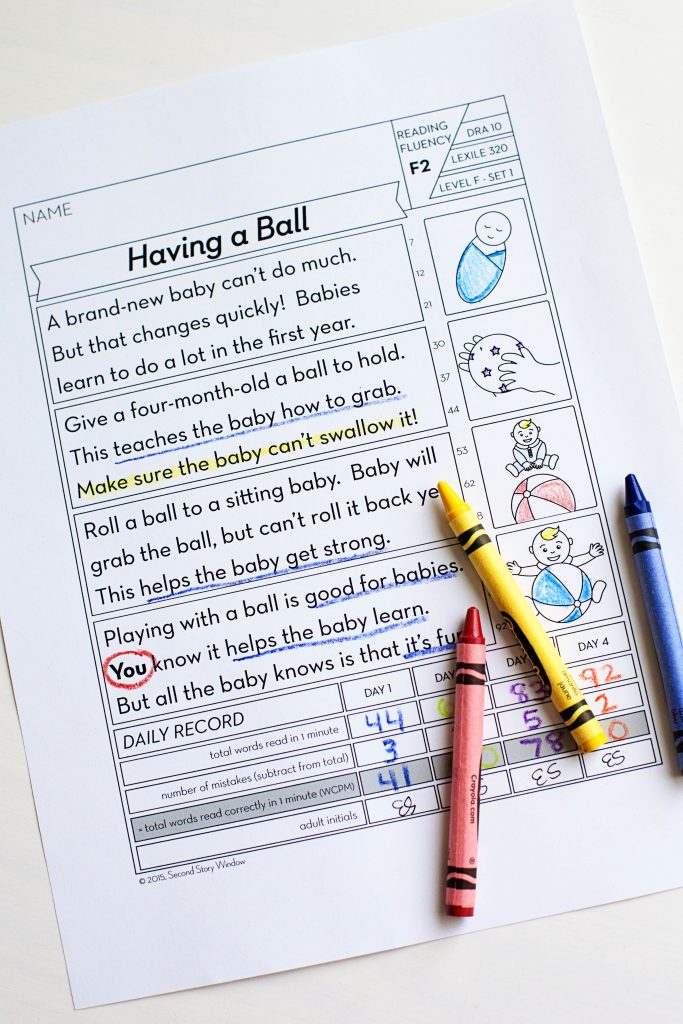 NAME
READING
FLUENCY
F2
DRA 10
LEXILE 320
LEVEL F - SET 1
Having a Ball
A brand-new baby can't do much. 7
But that changes quickly! Babies 12
learn to do a lot in the first year. 21
Give a four-month-old a ball to hold. 30
This teaches the baby how to grab. 37
Make sure the baby can't swallow it! 44
Roll a ball to a sitting baby. Baby will 53
grab the ball, but can't roll it back 62
This helps the baby get strong. 8
Playing with a ball is good for babies.
You know it helps the baby learn.
But all the baby knows is that it's 92
DAILY RECORD DAY 1 DAY 4
total words read in 1 minute 44 92
number of mistakes (subtract from total) 3 5 2
= total words read correctly in 1 minute (WCPM) 41 78
adult initials
© 2015, Second Story Window
amarillo
jaune
Crayola.com